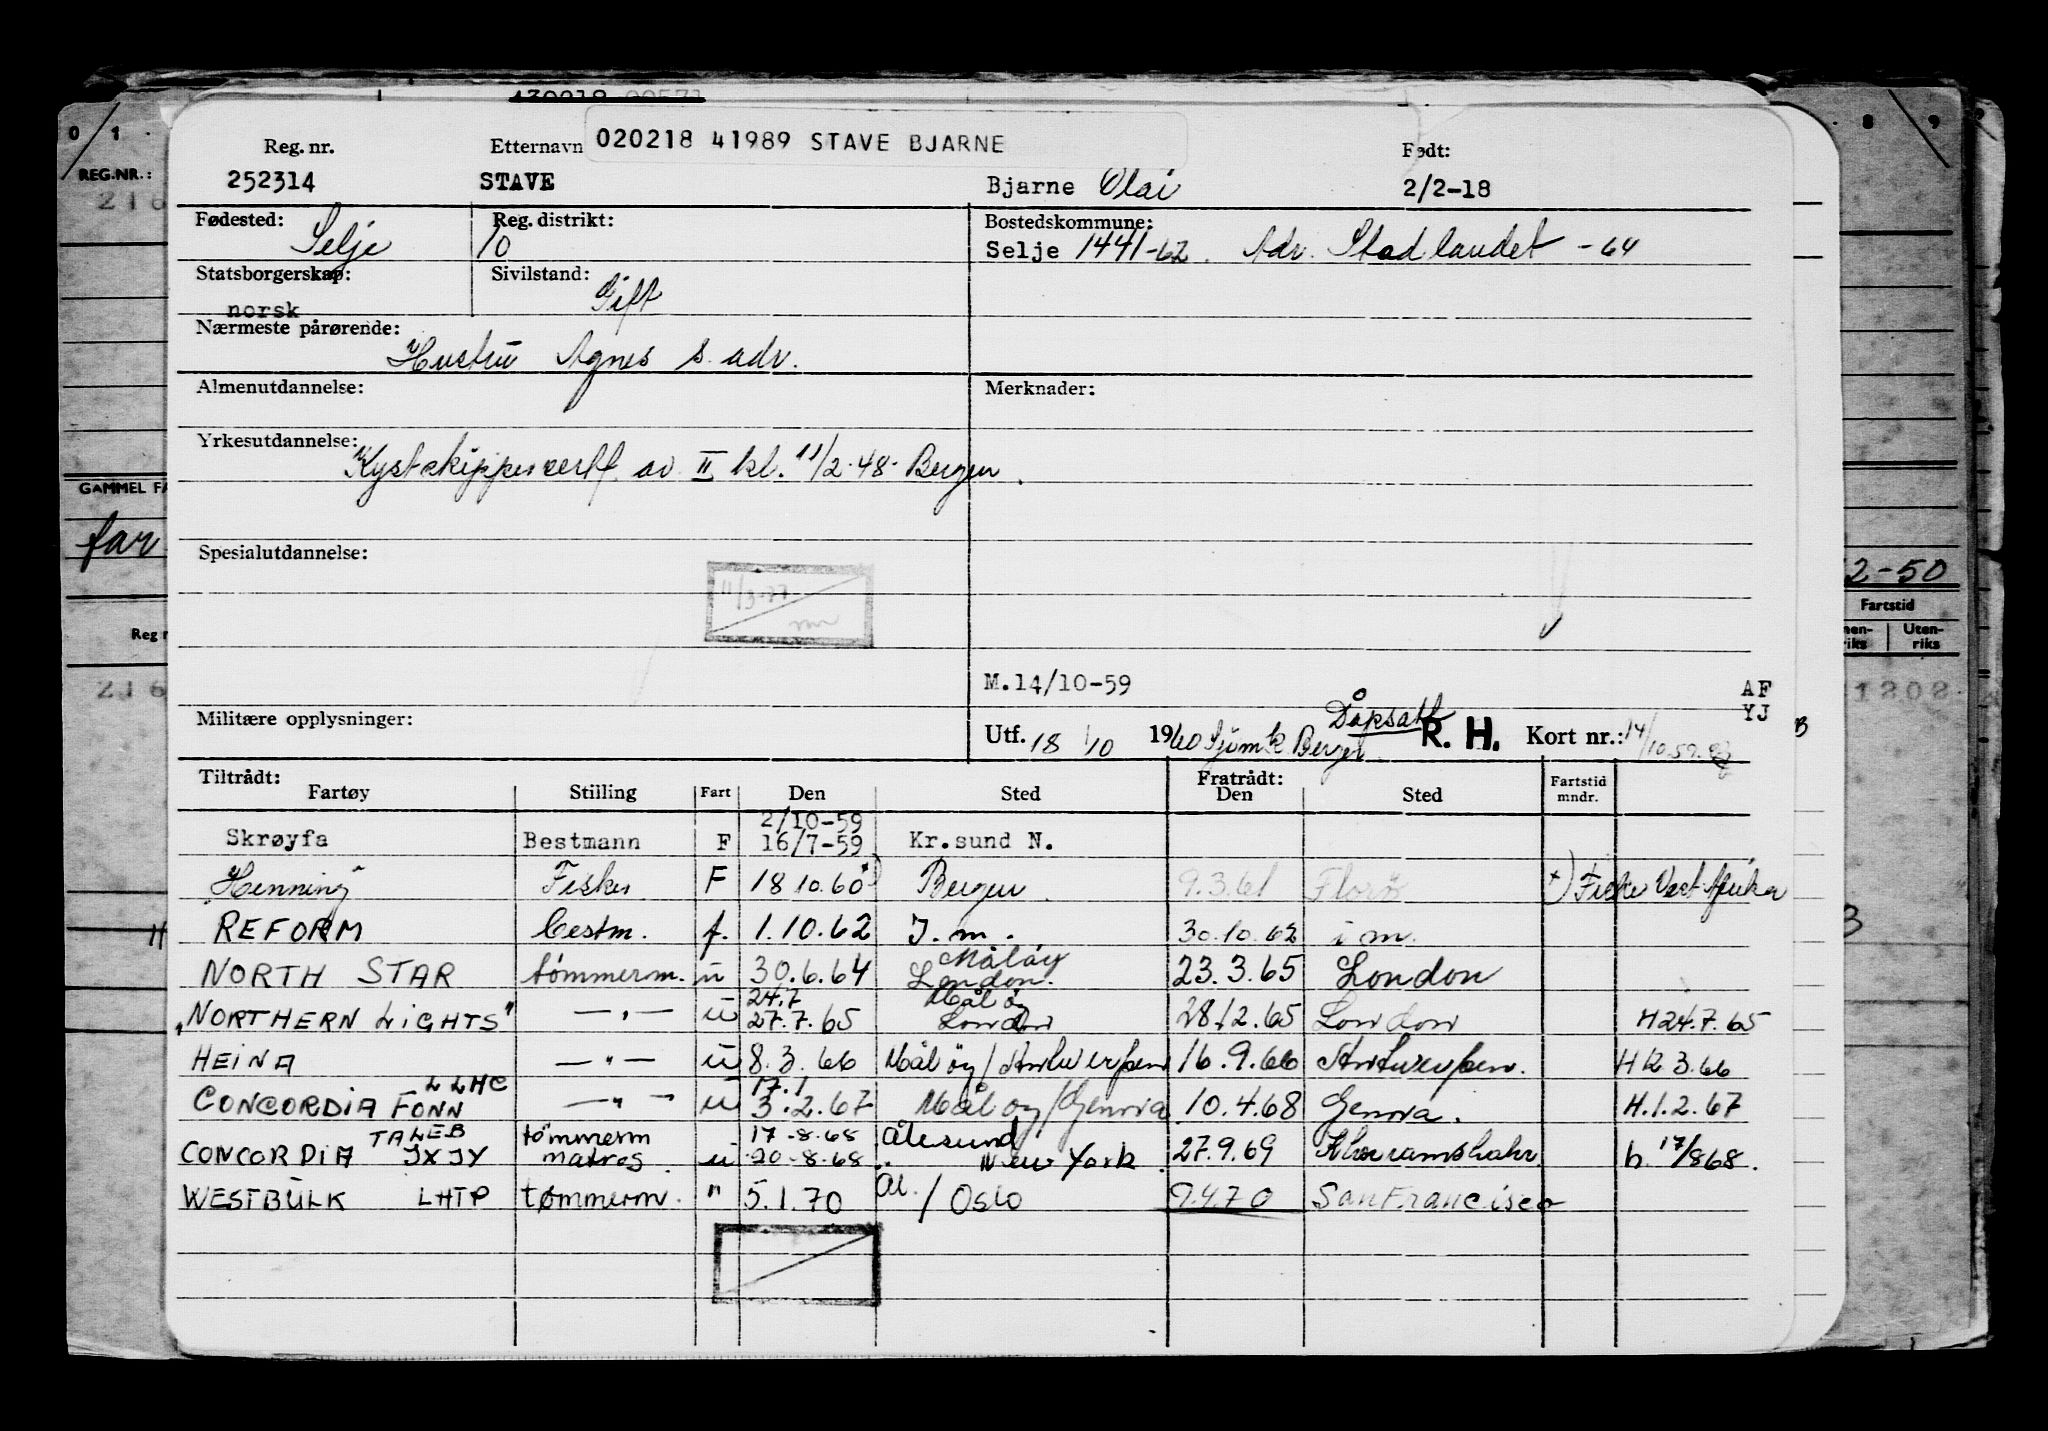 0 1 8 9
REG.NR.:
Reg. nr. Etternavn 020218 41989 STAVE BJARNE Født:
252314 STAVE Bjarne Olai 2/2-18
Fødested: Selje Reg. distrikt: 10 Bostedskommune: Selje 1441-62. Adr. Stadlandet -64
Statsborgerskap: norsk Sivilstand: Gift
Nærmeste pårørende: Hustru Agnes s. adr.
Almenutdannelse: Merknader:
Yrkesutdannelse: Kystskippersertf. av II kl. 11/2-48- Bergen.
GAMMEL FA
far
Spesialutdannelse:
11/3-77
2-50
Fartstid
Uten-
riks
Reg
M.14/10-59
AF
YJ
Militære opplysninger: Utf. 18 1/10 1960 Sjømk. Bergen Dåpsatt R. H. Kort nr.: 14/10-59.
Tiltrådt: Fratrådt: Fartstid mndr.
Fartøy Stilling Fart Den Sted Den Sted
2/10-59
Skrøyfa Bestmann F 16/7-59 Kr.sund N.
Henning Fisker F 18 10.60 x) Bergen 9.3.61 Florø x) Fiske Vest Afrika
REFORM bestm. f. 1.10.62 I. m. 30.10.62 i m.
Måløy
NORTH STAR tømmerm. u 30.6.64 London. 23.3.65 London
24.7 Måløy
"NORTHERN LIGHTS" — " — u 27.7.65 London 28.12.65 London H 24.7.65
HEINA — " — u 8.3.66 Måløy/Antwerpen 16.9.66 Antwerpen. H 12 3.66
LLHC 17.1
CONCORDIA FONN — " — u 3.2.67 Måløy/Genova 10.4.68 Genova. H.1.2.67
TALEB tømmerm 17-8-68 Ålesund
CONCORDIA JXJY matros u 20-8-68 New York 27.9.69 Khorramshahr. b. 17/868.
WESTBULK LHTP tømmerm. " 5.1.70 Ål. / Oslo 9.4.70 San Francisco